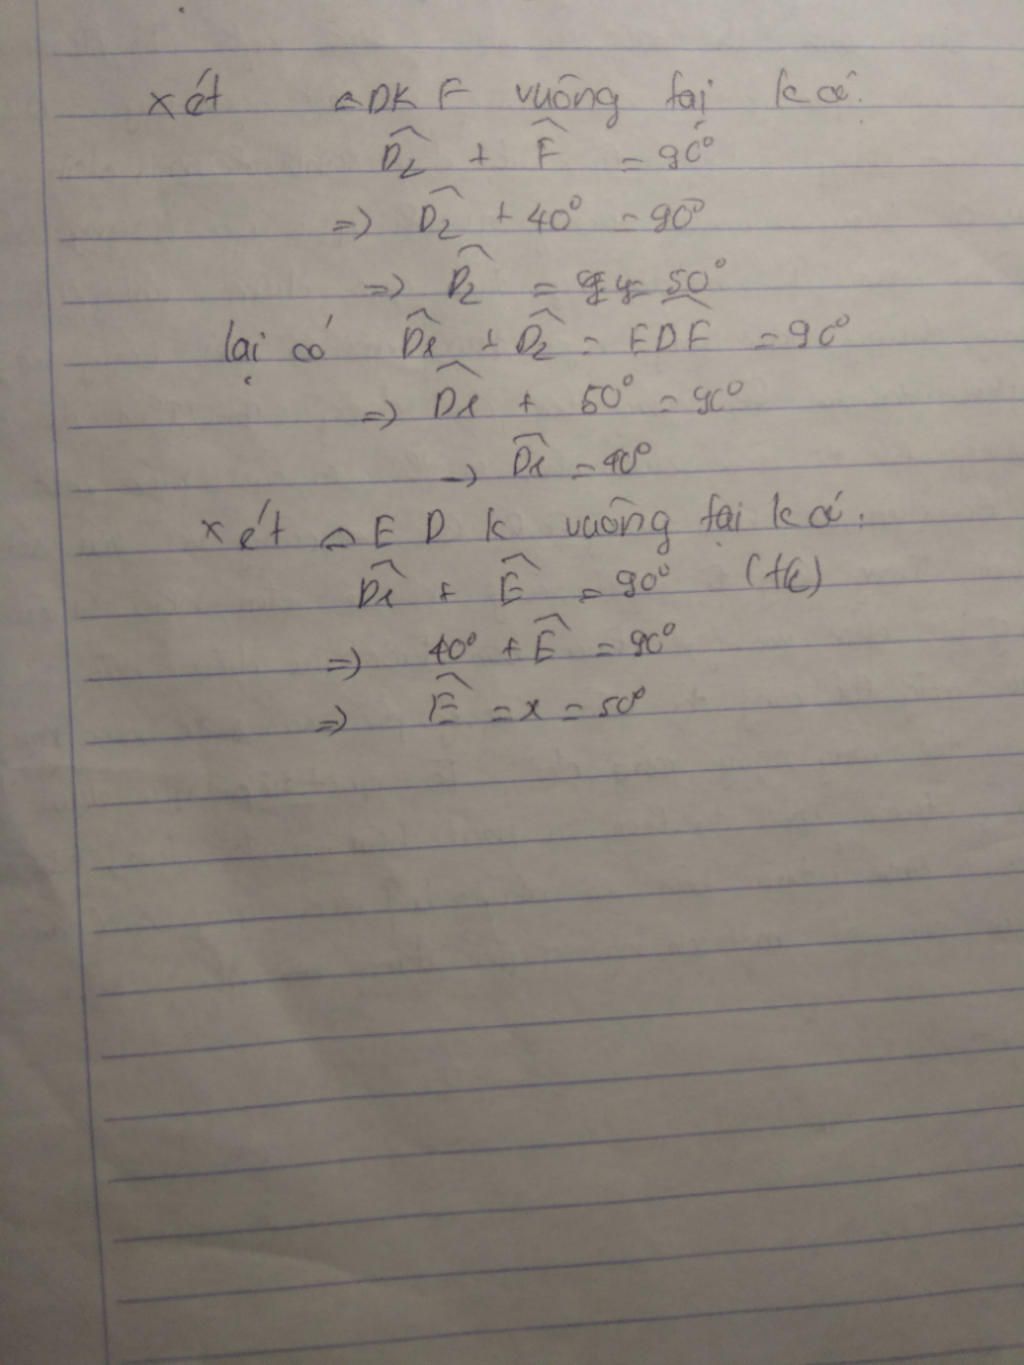 xét △DKF vuông tại k có.
D̂₂ + F̂ = 90°
=> D̂₂ + 40° = 90°
=> D̂₂ = 50°
lại có D̂₁ + D̂₂ = EDF = 90°
=> D̂₁ + 50° = 90°
=> D̂₁ = 40°
xét △EDK vuông tại k có.
D̂₁ + Ê = 90° (t/c)
=> 40° + Ê = 90°
=> Ê = x = 50°